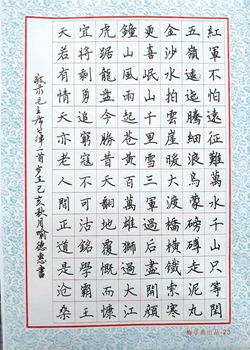 紅軍不怕遠征難萬水千山只等閑
五嶺逶迤騰細浪烏蒙磅礴走泥丸
金沙水拍雲崖暖大渡橋橫鐵索寒
更喜岷山千里雪三軍過後盡開顏
鐘山風雨起蒼黃百萬雄師過大江
虎踞龍盤今勝昔天翻地覆慨而慷
宜將剩勇追窮寇不可沽名學霸王
天若有情天亦老人間正道是滄桑
敬录毛主席七律二首岁在己亥秋月喻德惠書
出品-23